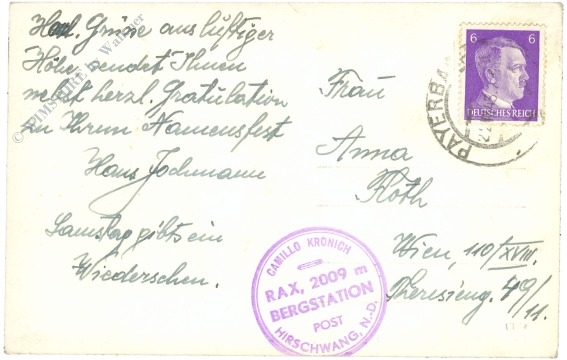 Herzl. Grüsse aus luftiger
Höhe sendet Ihnen
nebst herzl. Gratulation
zu Ihrem Namensfest
Hans Jochmann
Samstag gibts ein
Wiedersehen.
Frau
Anna
Roth
Wien, 110/XVIII.
Theresieng. 49/11.
6 6
DEUTSCHES REICH
PAYERBA
CAMILLO KRONICH
RAX, 2009 m
BERGSTATION
POST
HIRSCHWANG, N.D.